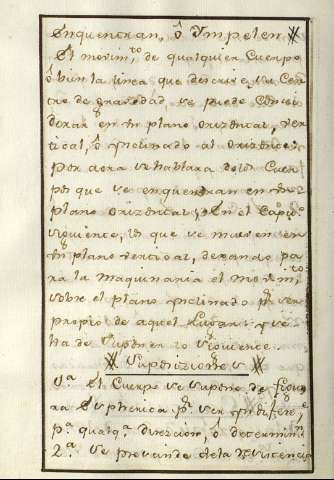 Enquentran, ô Ympelen
El movim.to de qualquier Cuerpo
ô bien la linea que descrive, su Cen
tro de gravedad, se puede Consi
derar en Vn plano Orizontal, ver
tical, ô Ynclinado al Orizonte;
por aora se hablara de los Cuer
pos que se enquentran en Vn
plano Orizontal, y en el Capi.o
siguiente, de que se mueven en
Vn plano vertical, dexando pa
ra la Maquinaria el Movim.to
sobre el plano Ynclinado p.r ser
propio de aquel Lugar: y se
ha de suponer lo siguiente.
Supoziziones
1.a El Cuerpo se supone de figu
ra Espherica p.r ser Yndifere.te
p.a qualq.a direzion, ô determin.n
2.a Se prescinde de la Resistencia